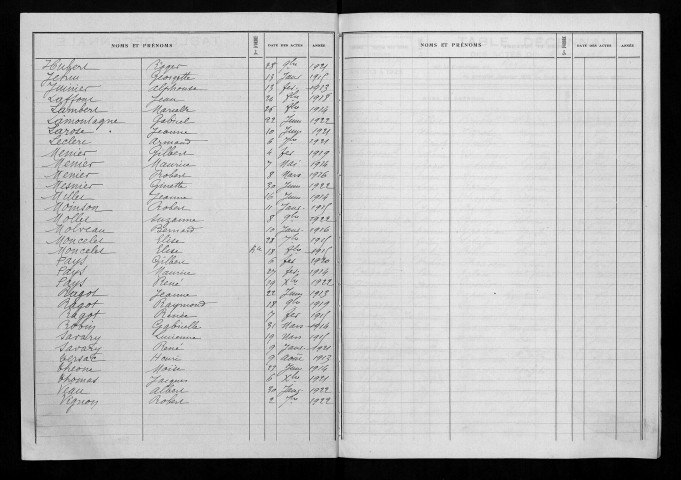 NOMS ET PRÉNOMS DATE DES ACTES ANNÉE
Hubert Roger 28 9bre 1921
Georgette 13 Janv 1915
Alphonse 13 fev 1913
Jean 26
Lambert Marcelle 26 1914
Lamontagne Gabriel 22 Juin 1922
Larose Jeanne 10 1921
Leclerc Armand 6 7bre 1921
Menier Gilbert 4 fev 1919
Menier Maurice 7 Mai 1914
Menier Robert 8 Mars 1916
Mesnier Ginette 30 Juin 1922
Millet Jeanne 16 Juin 1914
Moinson Robert 11 Janv 1915
Mollet Suzanne 8 9bre 1922
Molveau Bernard 10 Janv 1916
Moncelet Elise 28 7bre 1915
Moncelet Elise 18 1915
Pays Gilbert 6 fev 1920
Pays Maurice 27 fev 1914
Pays René 19 Xbre 1922
Ragot Jeanne 22 Juin 1913
Ragot Raymond 18 9bre 1919
Ragot Renée 7 fev 1915
Robin Gabrielle 31 Mars 1914
Savary Lucienne 19 Mars 1915
Savary René 9 Janv 1921
Henri 9 Août 1913
Moïse 27 1914
Thomas Jacques 6 Xbre 1921
Viau Albert 20 1922
Vignon Robert 2 7bre 1922
NOMS ET PRÉNOMS DATE DES ACTES ANNÉE